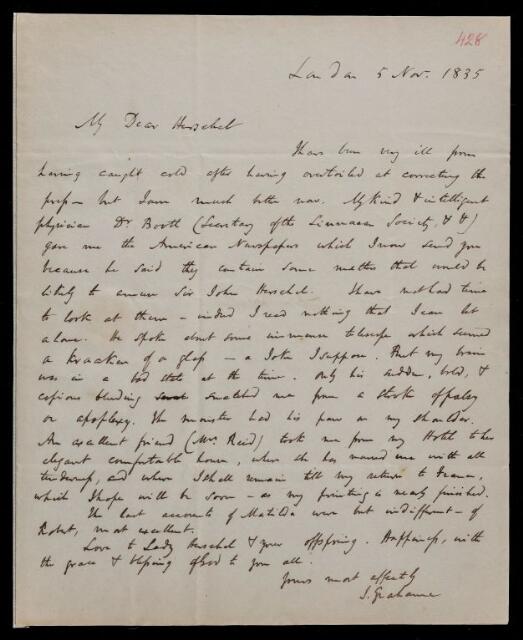 428
London 5 Nov. 1835
My Dear Herschel
I have been very ill from
having caught cold after having overtoiled at correcting the
press – but I am much better now. My kind & intelligent
physician Dr. Boott (Secretary of the Linnaean Society, & &)
gave me the American Newspapers which I now send you
because he said they contain some matter that would be
likely to amuse Sir John Herschel. I have not had time
to look at them – indeed I read nothing that I can let
alone. He spoke about some immense telescope which seemed
a kracker of a glass – a Joke I suppose. But my brain
was in a bad state at the time. Only his sudden, bold, &
copious bleeding snatched me from a stroke of palsy
or apoplexy. The monster had his paw on my shoulder.
An excellent friend (Mrs. Reid) took me from my Hotel to her
elegant comfortable house, where she has nursed me with all
tenderness, and where I shall remain till my return to France,
which I hope will be soon – as my printing is nearly finished.
The last accounts of Matilda were but indifferent – of
Robert, most excellent.
Love to Lady Herschel & your offspring. Happiness, with
the grace & blessing of God to you all.
Yours most affectly
S. Grahame